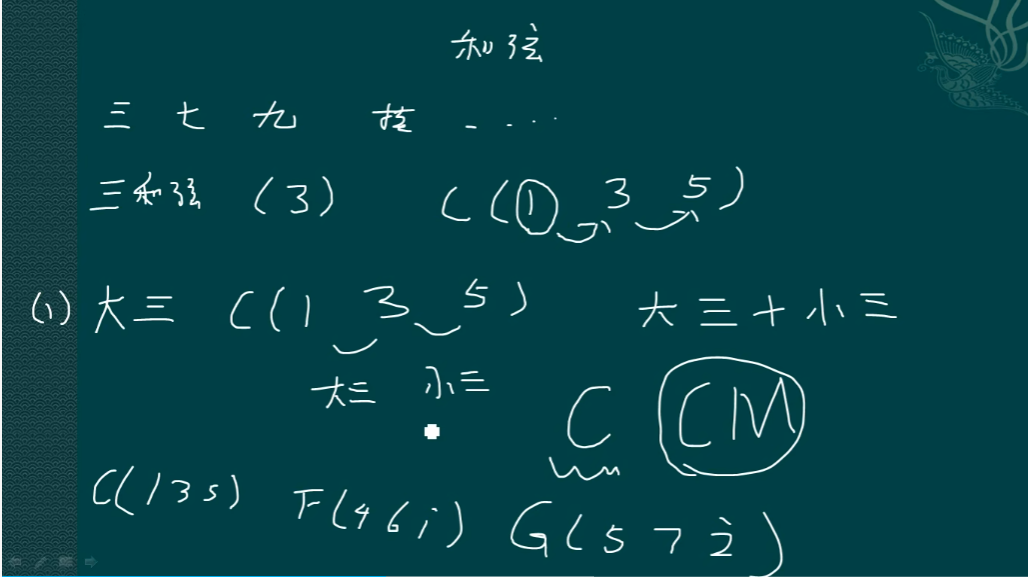 和弦
三 七 九 挂 - ....
三和弦 (3) C(1 3 5)
(1) 大三 C(1 3 5) 大三+小三
大三 小三
C CM
C(135) F(46i) G(572̇)